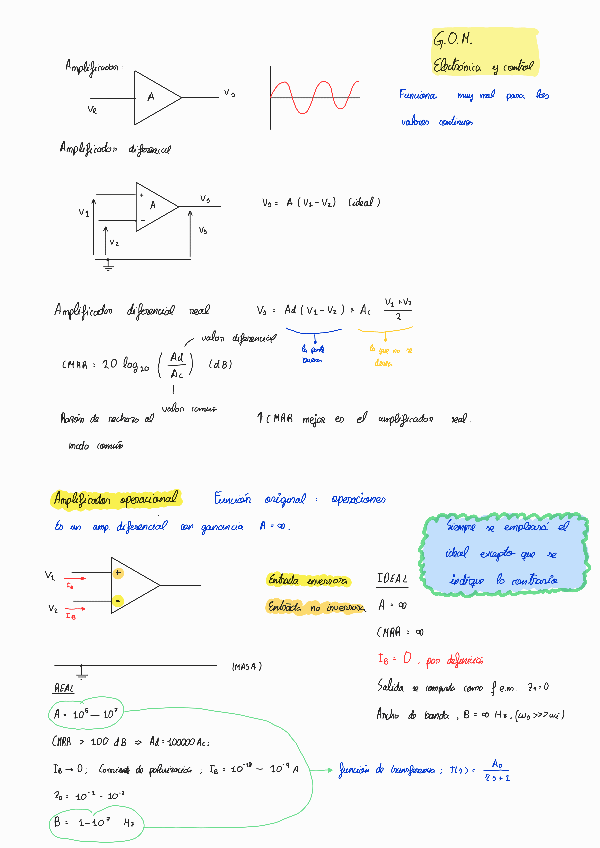 G.O.M.
Electrónica y control
Amplificador
Ve
A
Vs
Funciona muy mal para los
valores continuos
Amplificador diferencial
+
A
-
V1
V2
Vs
Vs
Vs = A (V1-V2) (ideal)
Amplificador diferencial real
Vs = Ad (V1-V2) + Ac (V1+V2)/2
la parte
buena
lo que no se
desea
valor diferencial
CMRR = 20 log10 (Ad/Ac) (dB)
valor comun
Razón de rechazo al
modo común
↑CMRR mejor es el amplificador real.
Amplificador operacional Función original: operaciones
Es un amp. diferencial con ganancia A=∞.
Siempre se empleará el
ideal excepto que se
indique lo contrario
V1
+
IB
V2
-
IB
(MASA)
Entrada inversora
Entrada no inversora
IDEAL
A = ∞
CMRR = ∞
IB = 0, por definición
Salida se comporta como f.e.m. Zo=0
Ancho de banda, B = ∞ Hz, (ω0 >>> ωi)
REAL
A = 10^5 — 10^7
CMRR > 100 dB ⇒ Ad=100000Ac;
IB → 0; Corriente de polarización, IB = 10^-10 - 10^-9 A
Zo = 10^-1 - 10^-2
B = 1-10^2 Hz
función de transferencia; T(s) = A0/(τs+1)